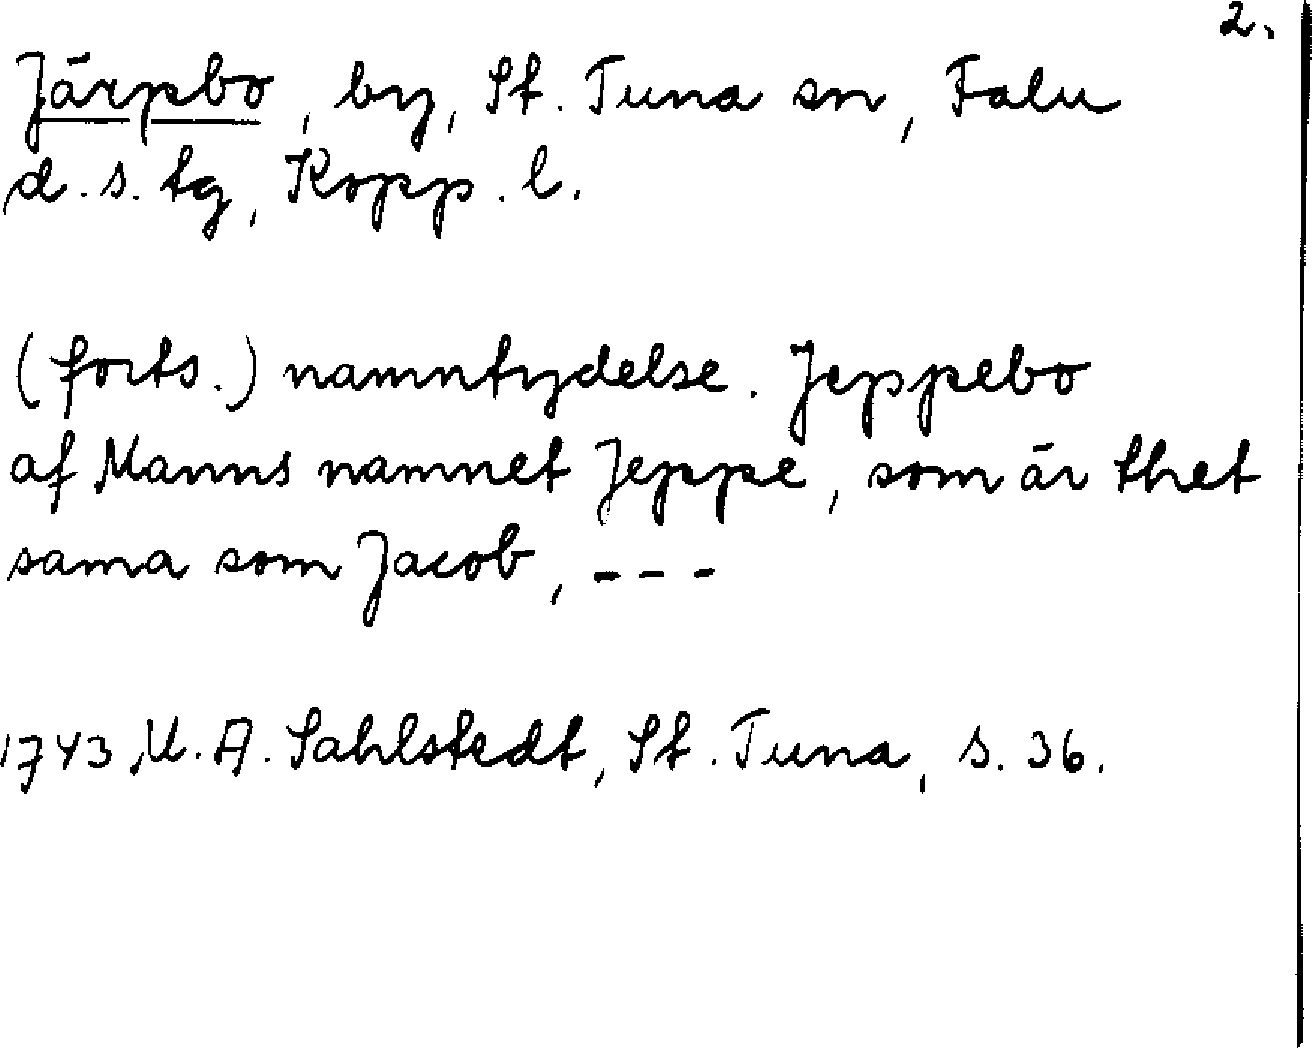 2.
Järpbo, by, St. Tuna sn, Falu
d. s. tg, Kopp. l.
(forts.) namntydelse. Jeppebo
af Manns namnet Jeppe, som är thet
sama som Jacob, ---
1743, U. A. Sahlstedt, St. Tuna, s. 36.